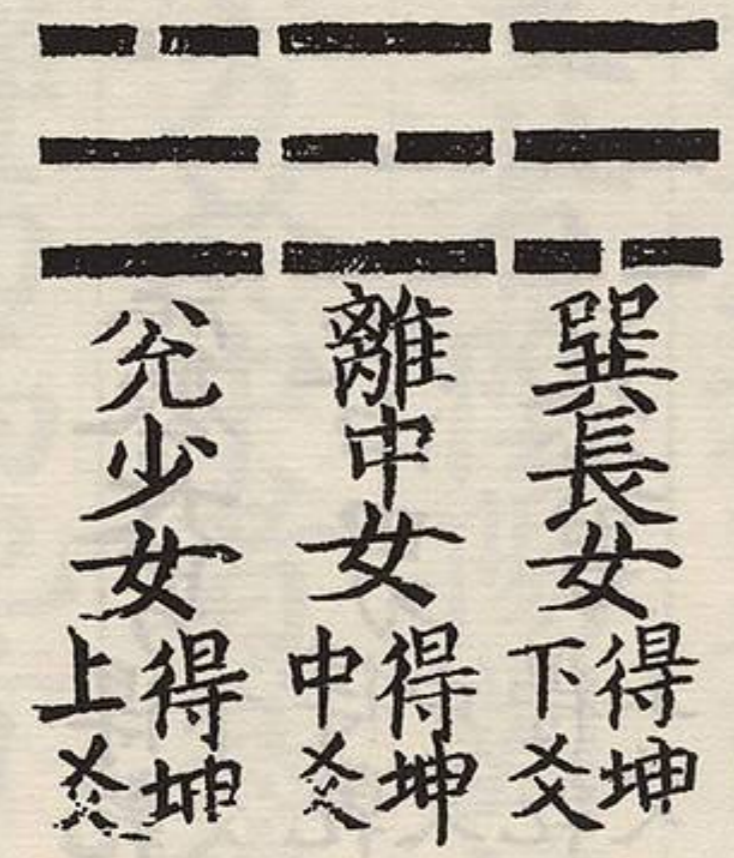 巽長女
得坤
下爻
離中女
得坤
中爻
兊少女
得坤
上爻